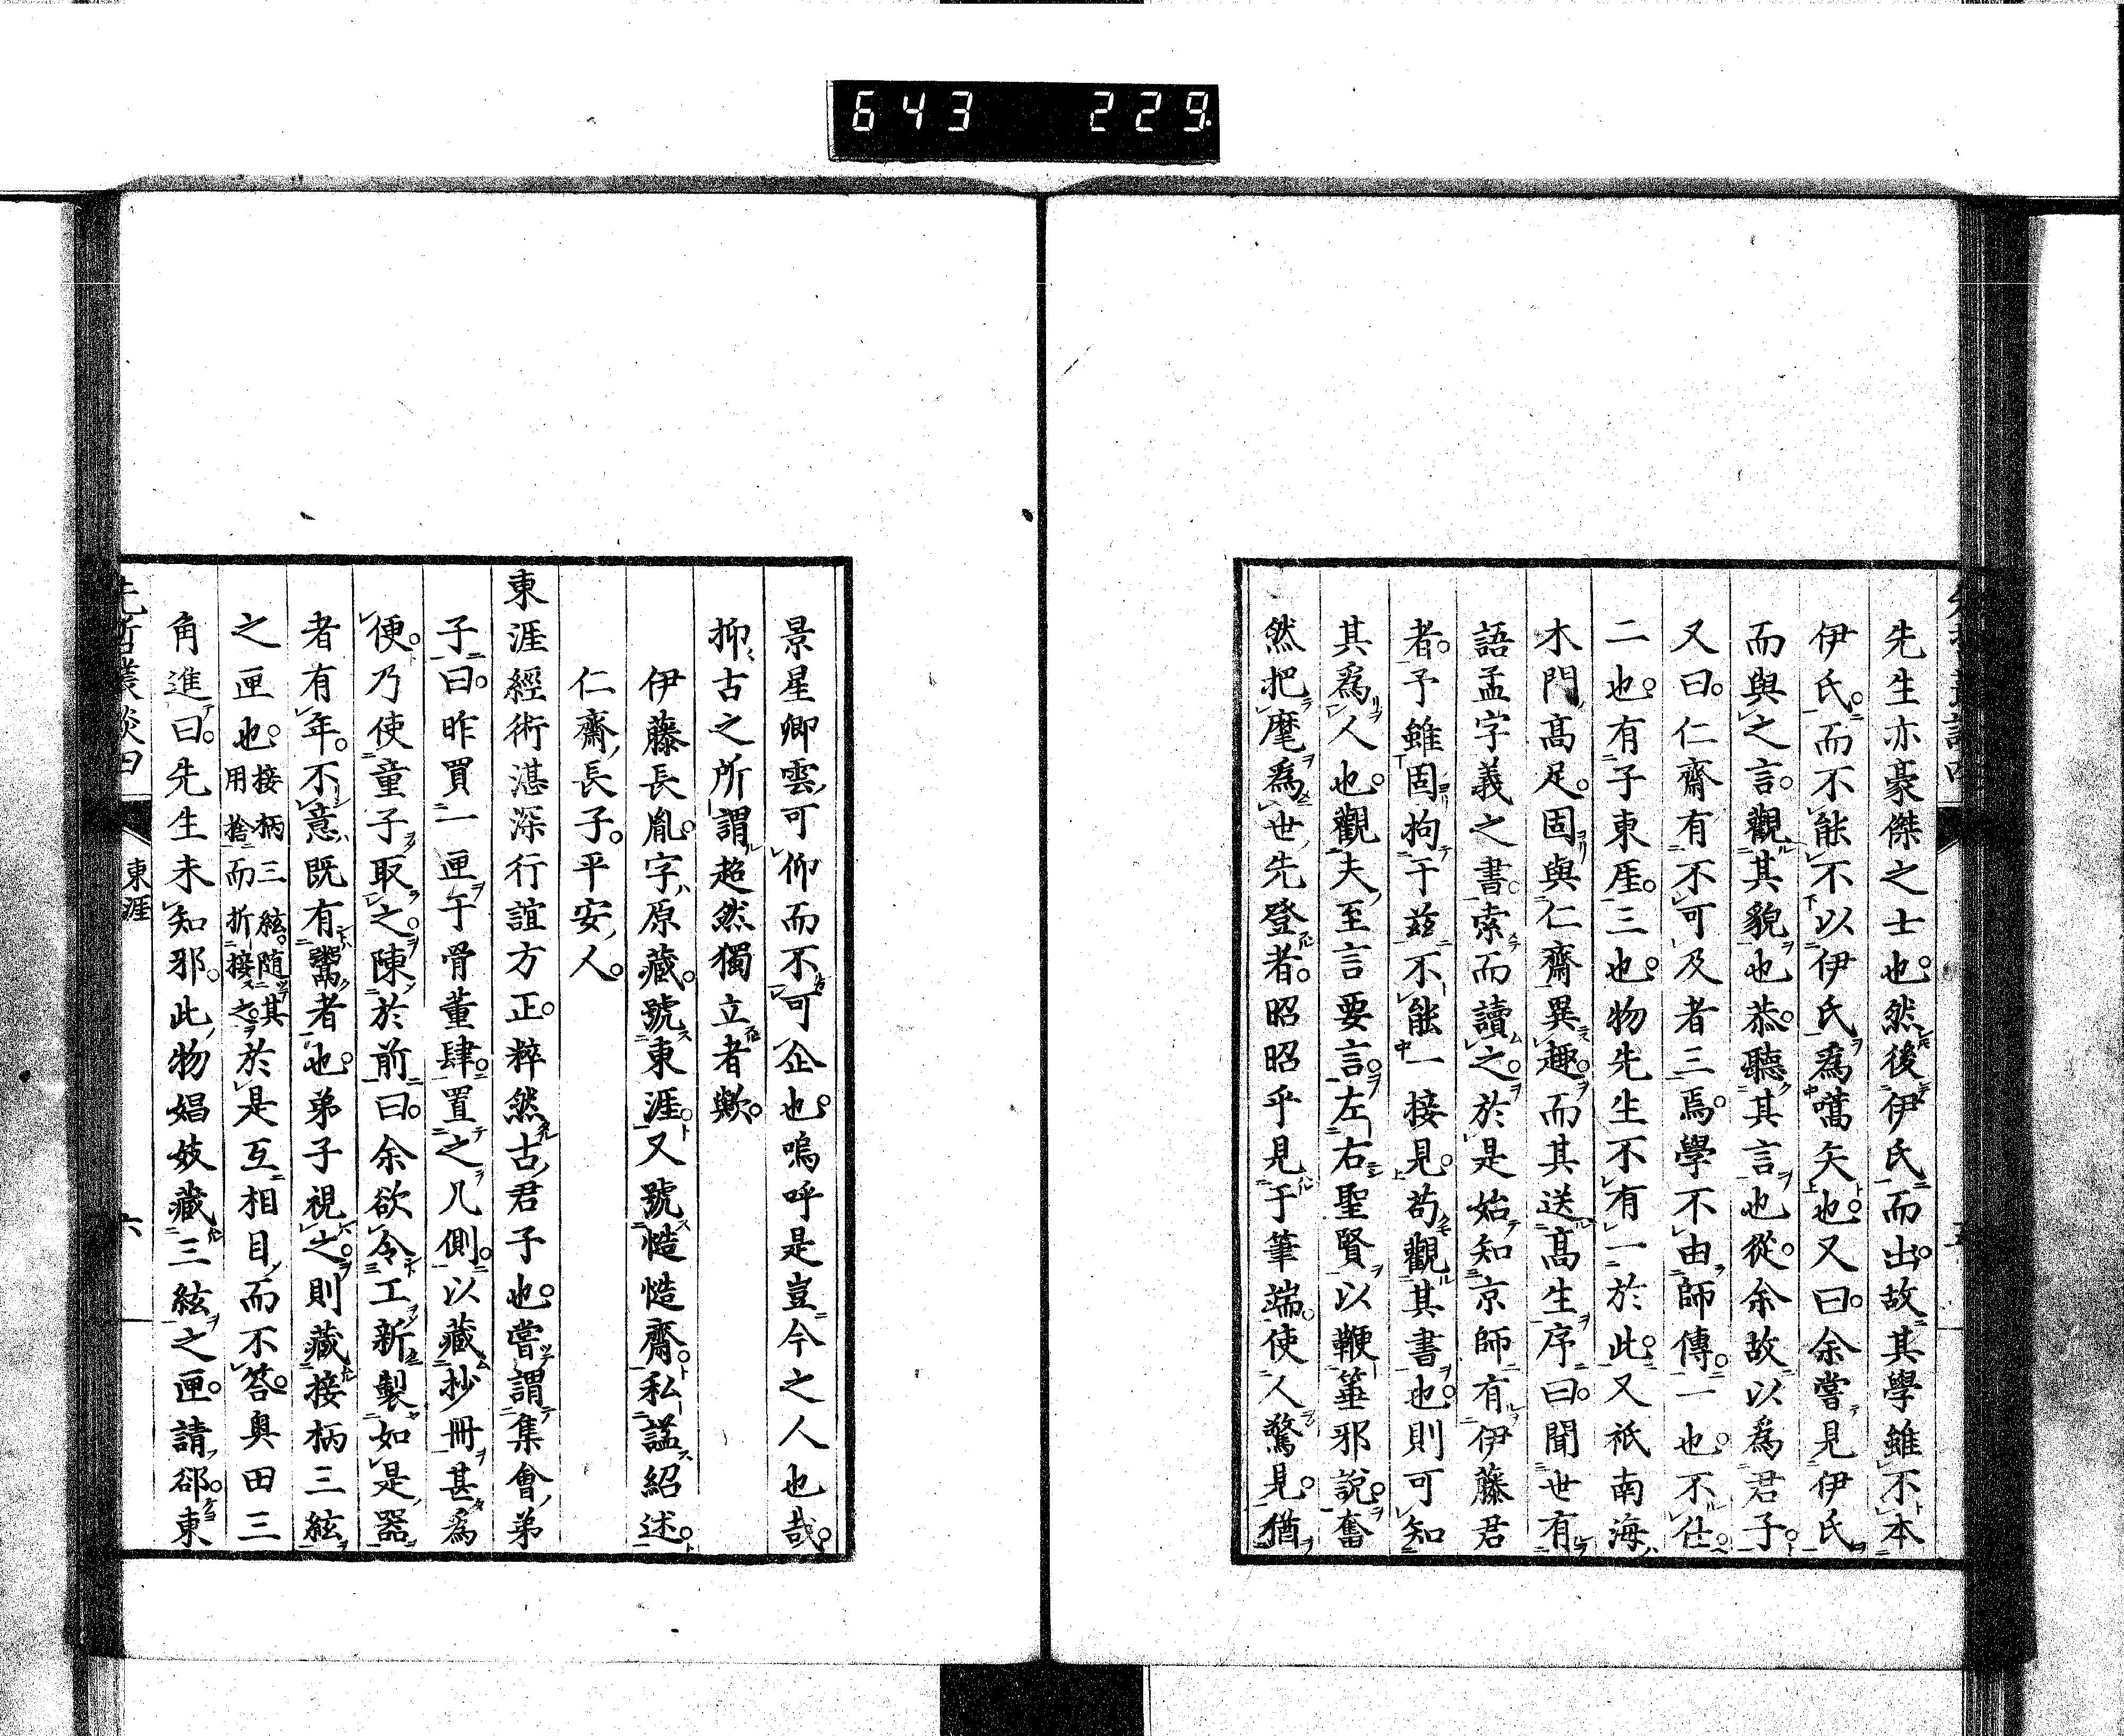 643 229
先生亦豪傑之士也。然後伊氏而出。故其學雖不本
伊氏。而不能不以伊氏爲嚆矢也。又曰。余嘗見伊氏
而與之言。觀其貌也恭。聽其言也從。余故以爲君子。
又曰。仁齋有不可及者三焉。學不由師傳。一也。不仕。
二也。有子東厓。三也。物先生不有一於此。又祇南海
木門高足。固與仁齋異趣。而其送高生序曰。聞世有
語孟字義之書。索而讀之。於是始知京師有伊藤君
者。予雖固拘于玆不能一接見。苟觀其書也。則可知
其爲人也。觀夫至言要言。左右聖賢。以鞭箠邪說。奮
然把麾爲世先登者。昭昭乎見于筆端。使人驚見。猶
景星卿雲可仰而不可企也。嗚呼是豈今之人也哉。
抑古之所謂超然獨立者歟。
伊藤長胤。字原藏。號東涯。又號慥慥齋。私諡紹述。
仁齋長子。平安人。
東涯經術湛深行誼方正。粹然古君子也。嘗謂集會弟
子曰。昨買一匣于骨董肆。置之几側。以藏抄冊。甚爲
便。乃使童子取之。陳於前曰。余欲令工新製如是器
者有年。不意既有鬻者也。弟子視之。則藏接柄三絃
之匣也。接柄三絃。隨其用捨而折接之。於是互相目而不答。奥田三
角進曰。先生未知邪。此物娼妓藏三絃之匣。請郤。東
東涯
六